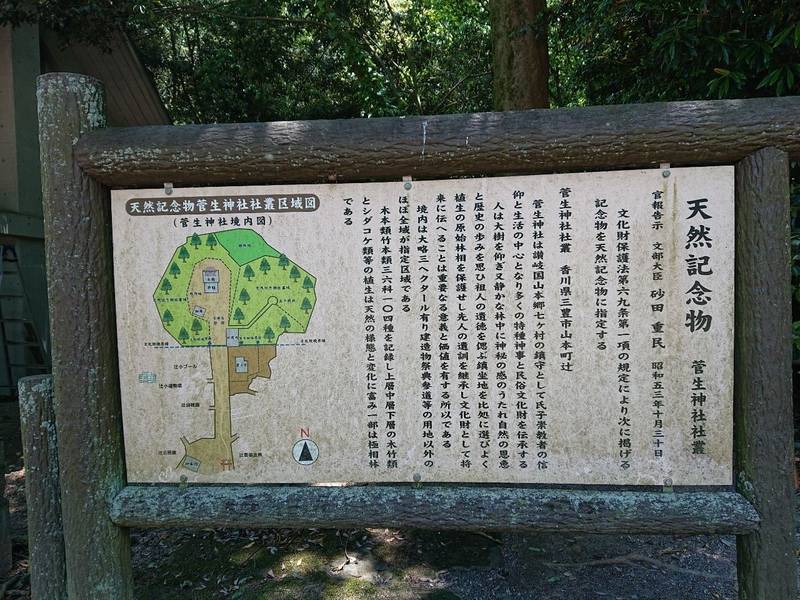 天然記念物 菅生神社社叢
官報告示 文部大臣 砂田 重民 昭和五三年十月三十日
文化財保護法第六九条第一項の規定により次に掲げる
記念物を天然記念物に指定する
菅生神社社叢 香川県三豊市山本町辻
菅生神社は讃岐国山本郷七ケ村の鎮守として氏子崇敬者の信
仰と生活の中心となり多くの特種神事と民俗文化財を伝承する
人は大樹を仰ぎ又静かな林中に神秘の感のうたれ自然の恩恵
と歴史の歩みを思ひ祖人の遺徳を偲ぶ鎮坐地を此処に選びよく
植生の原始林相を保護せし先人の遺訓を継承し文化財として将
来に伝へることは重要なる意義と価値を有する所以である
境内は大略三ヘクタール有り建造物祭典参道等の用地以外の
ほぼ全域が指定区域である
木本類竹本類三六科一〇四種を記録し上層中層下層の木竹類
とシダコケ類等の植生は天然の様態と変化に富み一部は極相林
である
天然記念物菅生神社社叢区域図
(菅生神社境内図)
辻小プール
辻小運動場
辻幼稚園
辻公民館
N